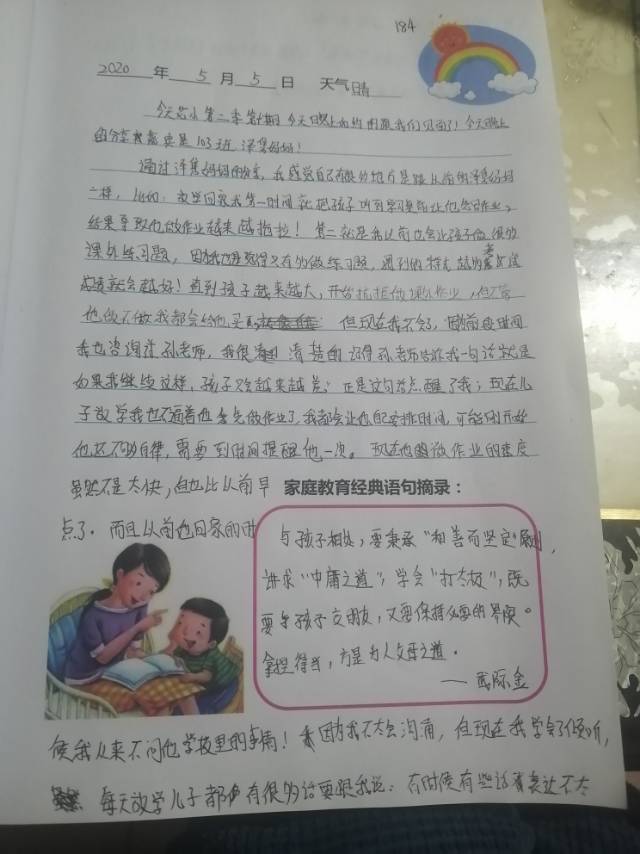 184
2020 年 5 月 5 日 天气 晴
今天芯小第二季第1期 今天晚上如约 跟我们见面了！今天晚上
的分享 更是 103班 泽 妈妈！
通过泽 妈妈的分享，我感觉自己有很多地方是跟从前的泽 妈妈
一样，比如：放学回家我第一时间就把孩子 让他写作业，
结果导致他做作业越来越拖拉！第二就是我以前也会让孩子做很多
课外练习题， 觉得只有多做练习题，遇到的 越多
就会越好！直到孩子越来越大，开始抗拒做课外作业，但不管
他做不做我都会给他买 但现在我不会了， 时间
我也咨询过孙老师，我很清楚的记得孙老师告诉我一句话就是
如果我继续这样，孩子只会越来越差；正是这句话点醒了我；现在儿
子放学我也不逼着他去先做作业了，我都会让他自己安排时间，可能刚开始
他还不够自律，需要到时间提醒他一次。 现在他做作业的速度
虽然不是太快，但也比以前早 家庭教育经典语句摘录：
点了．而且以前他回家的时
与孩子相处，要秉承“和善而坚定”原则，
讲求“中庸之道”，学会“打太极”，既
要与孩子交朋友，又要保持必要的界限。
拿捏得当，方是为人父母之道．
—— 武际金
候我从来不问他学校里的事情！因为我不太会沟通，但现在我学会了倾听，
每天放学儿子都有很多话要跟我说；有时候有些话语表达不太